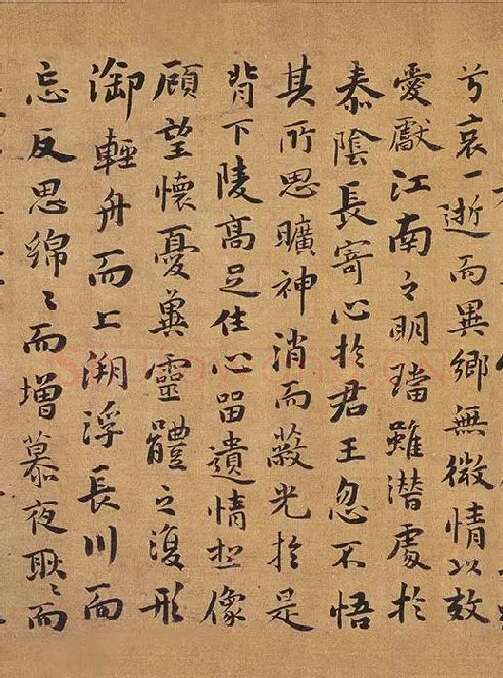 兮哀一逝而異鄉無微情以效
愛獻江南之明璫雖潛處於
泰陰長寄心於君王忽不悟
其所思曠神消而蔽光於是
背下陵高足往心留遺情想像
顧望懷憂冀靈體之復形
御輕舟而上溯浮長川而
忘反思綿〻而增慕夜耿〻而